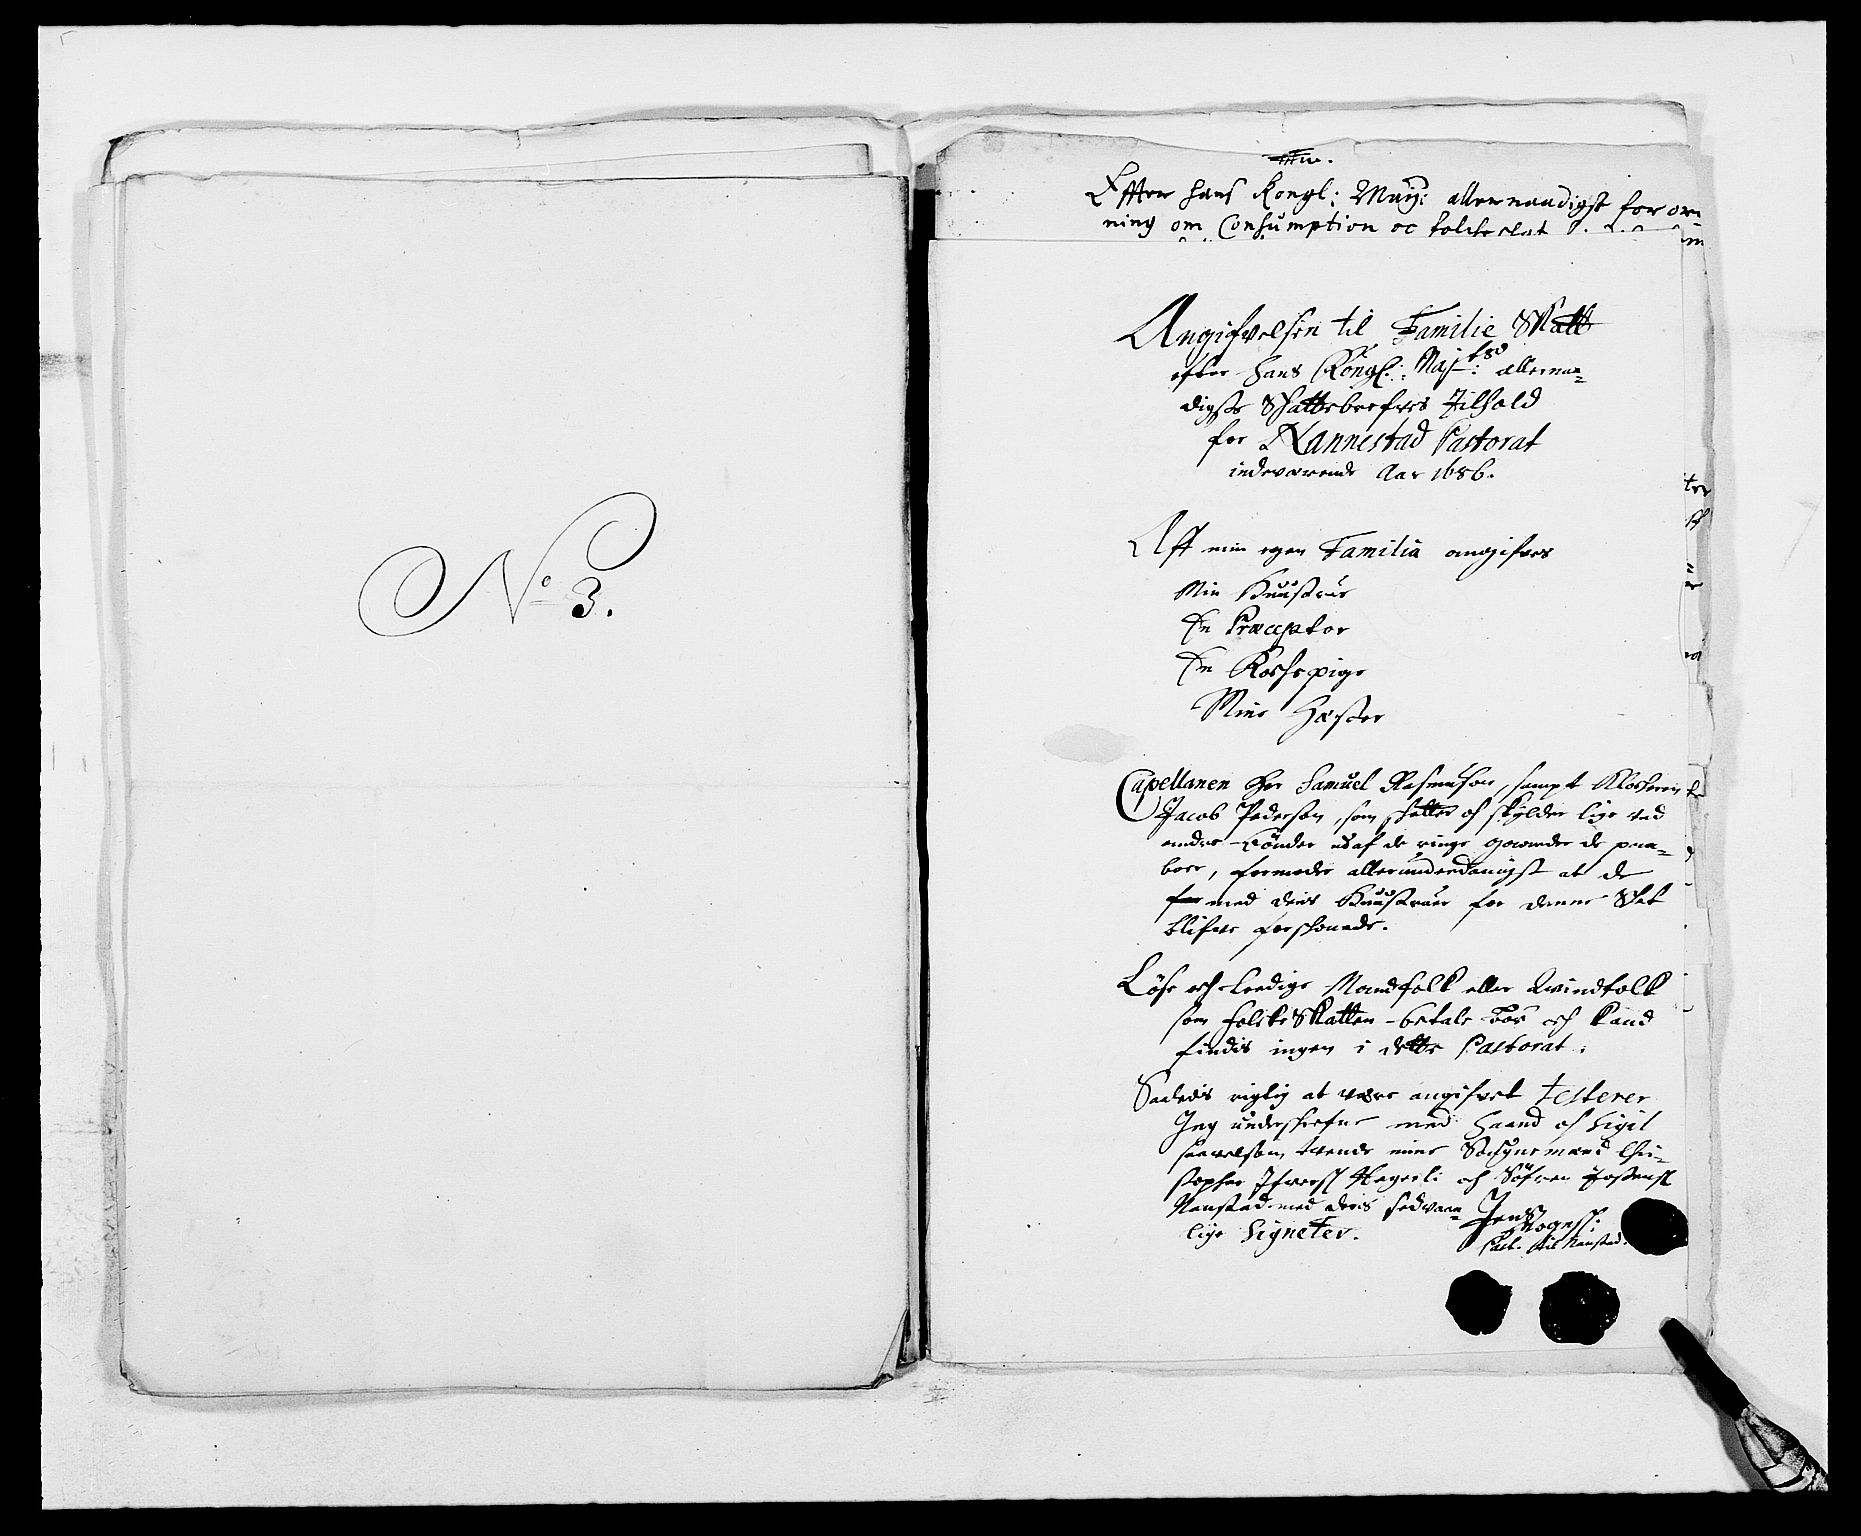 No 3.
Efter hans Kongl: May: allernaadigst foror:
ning om Consumption oc folcheskat
Angifvelsen til Familie Skatt
efter Hans Kongl: Maj: allernaa=
digste Skattebrefves Jilhold
for Nannestad Pastorat
indeværende Aar 1686.
Aff min egen Familia angifves
Min Huustrue
En Præceptor
En Kochepige
Mine Hæster
Capellanen Her Samuel Rasmusøn, sampt Klocheren
Jacob Pedersøn, som skatter och skylder lige ved
andre Bönder udaf de ringe gaarder de paa=
boer, formoder allerunderdanigst at de
med deris Huustruer for denne Skat
blifver forskonede.
Löse och Leedige Mandfolk eller Qvindfolk
som folcke Skatten betale bör och kand
findis ingen i dette Pastorat.
Saaledis rigtig at være angifvet testerer
Jeg underskrefne med Haand och Sigil
saavelsom tvende mine Sognemænd Chri=
stopher Ifversß Hagerli och Söfren Jostensß
Nanstad med deris sedvaan=
lige Signeter.
Jens
Mogensß:
Past. til Nanstad.